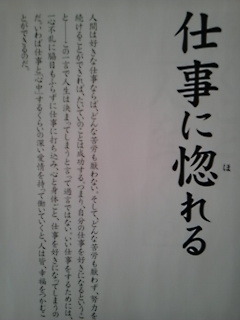 仕事に惚れる
ほ
人間は好きな仕事ならば、どんな苦労も厭わない。そして、どんな苦労も厭わず、努力を
続けることができれば、たいていのことは成功する。つまり、自分の仕事を好きになるというこ
と――この一言で人生は決まってしまうと言って過言ではない。いい仕事をするためには、
一心不乱に脇目もふらずに仕事に打ち込み、心と身体ごと、仕事を好きになってしまうの
だ。いわば仕事と「心中」するくらいの深い愛情を持って働いていくと、人は皆、幸福をつかむこ
とができるものだ。